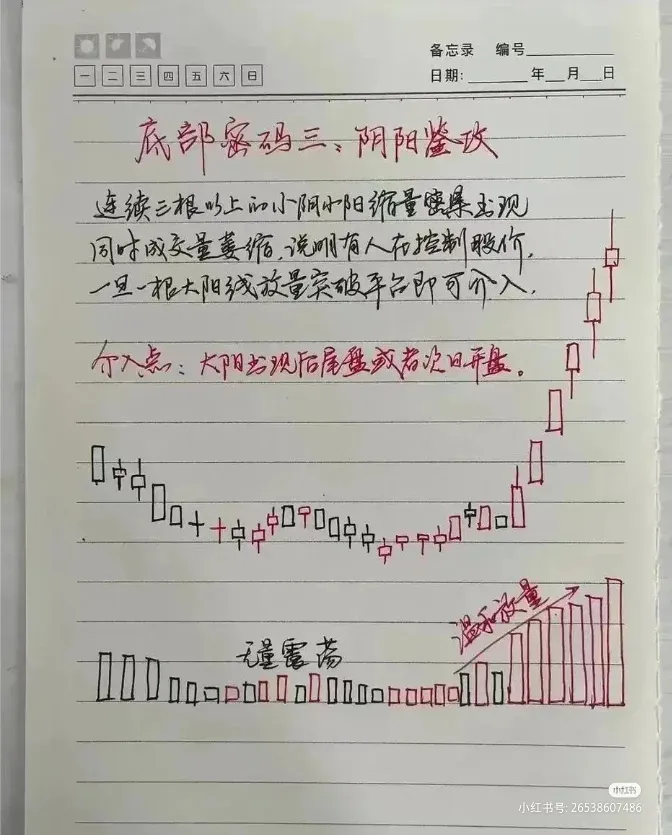 备忘录 编号
一 二 三 四 五 六 日
日期: 年 月 日
底部密码三:阴阳鉴攻
连续三根以上的小阴小阳缩量密集出现
同时成交量萎缩,说明有人在控制股价,
一旦一根大阳线放量突破平台即可介入.
介入点:大阳出现后尾盘或者次日开盘。
温和放量
无量震荡
小红书
小红书号: 26538607486